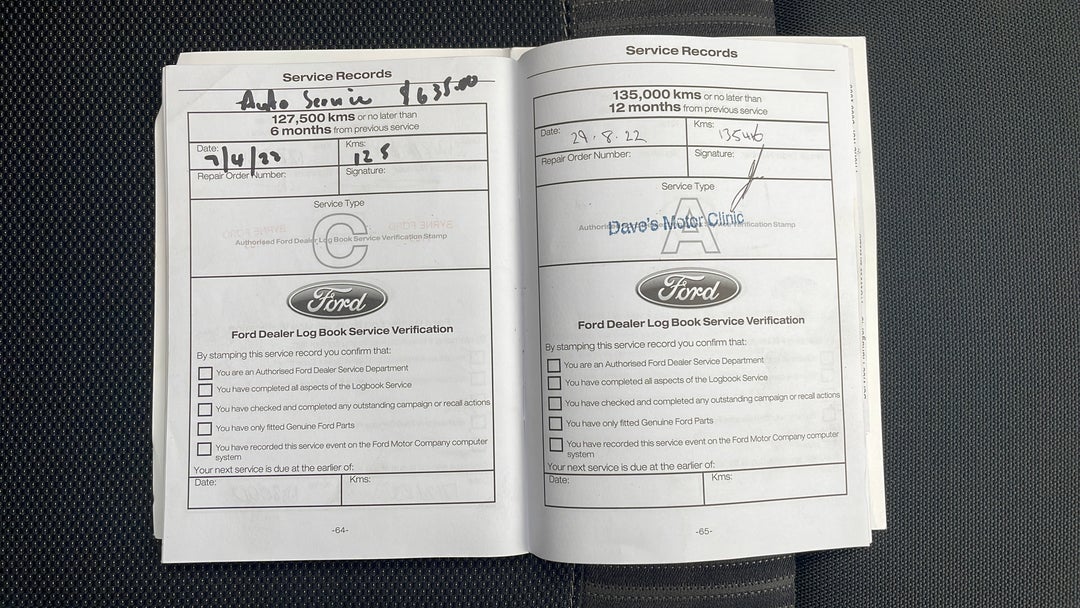 Service Records
Auto Service $635.00
127,500 kms or no later than
6 months from previous service
Date:
Kms:
128
Repair Order Number:
Signature:
Service Type
C
Authorised Ford Dealer Log Book Service Verification Stamp
Ford
Ford Dealer Log Book Service Verification
By stamping this service record you confirm that:
You are an Authorised Ford Dealer Service Department
You have completed all aspects of the Logbook Service
You have checked and completed any outstanding campaign or recall actions
You have only fitted Genuine Ford Parts
You have recorded this service event on the Ford Motor Company computer
system
Your next service is due at the earlier of:
Date:
Kms:
-64-
Service Records
135,000 kms or no later than
12 months from previous service
Date:
29.8.22
Kms:
Repair Order Number:
Signature:
Service Type
A
Dave's Motor Clinic
Verification Stamp
Ford
Ford Dealer Log Book Service Verification
By stamping this service record you confirm that:
You are an Authorised Ford Dealer Service Department
You have completed all aspects of the Logbook Service
You have checked and completed any outstanding campaign or recall actions
You have only fitted Genuine Ford Parts
You have recorded this service event on the Ford Motor Company computer
system
Your next service is due at the earlier of:
Date:
Kms:
-65-